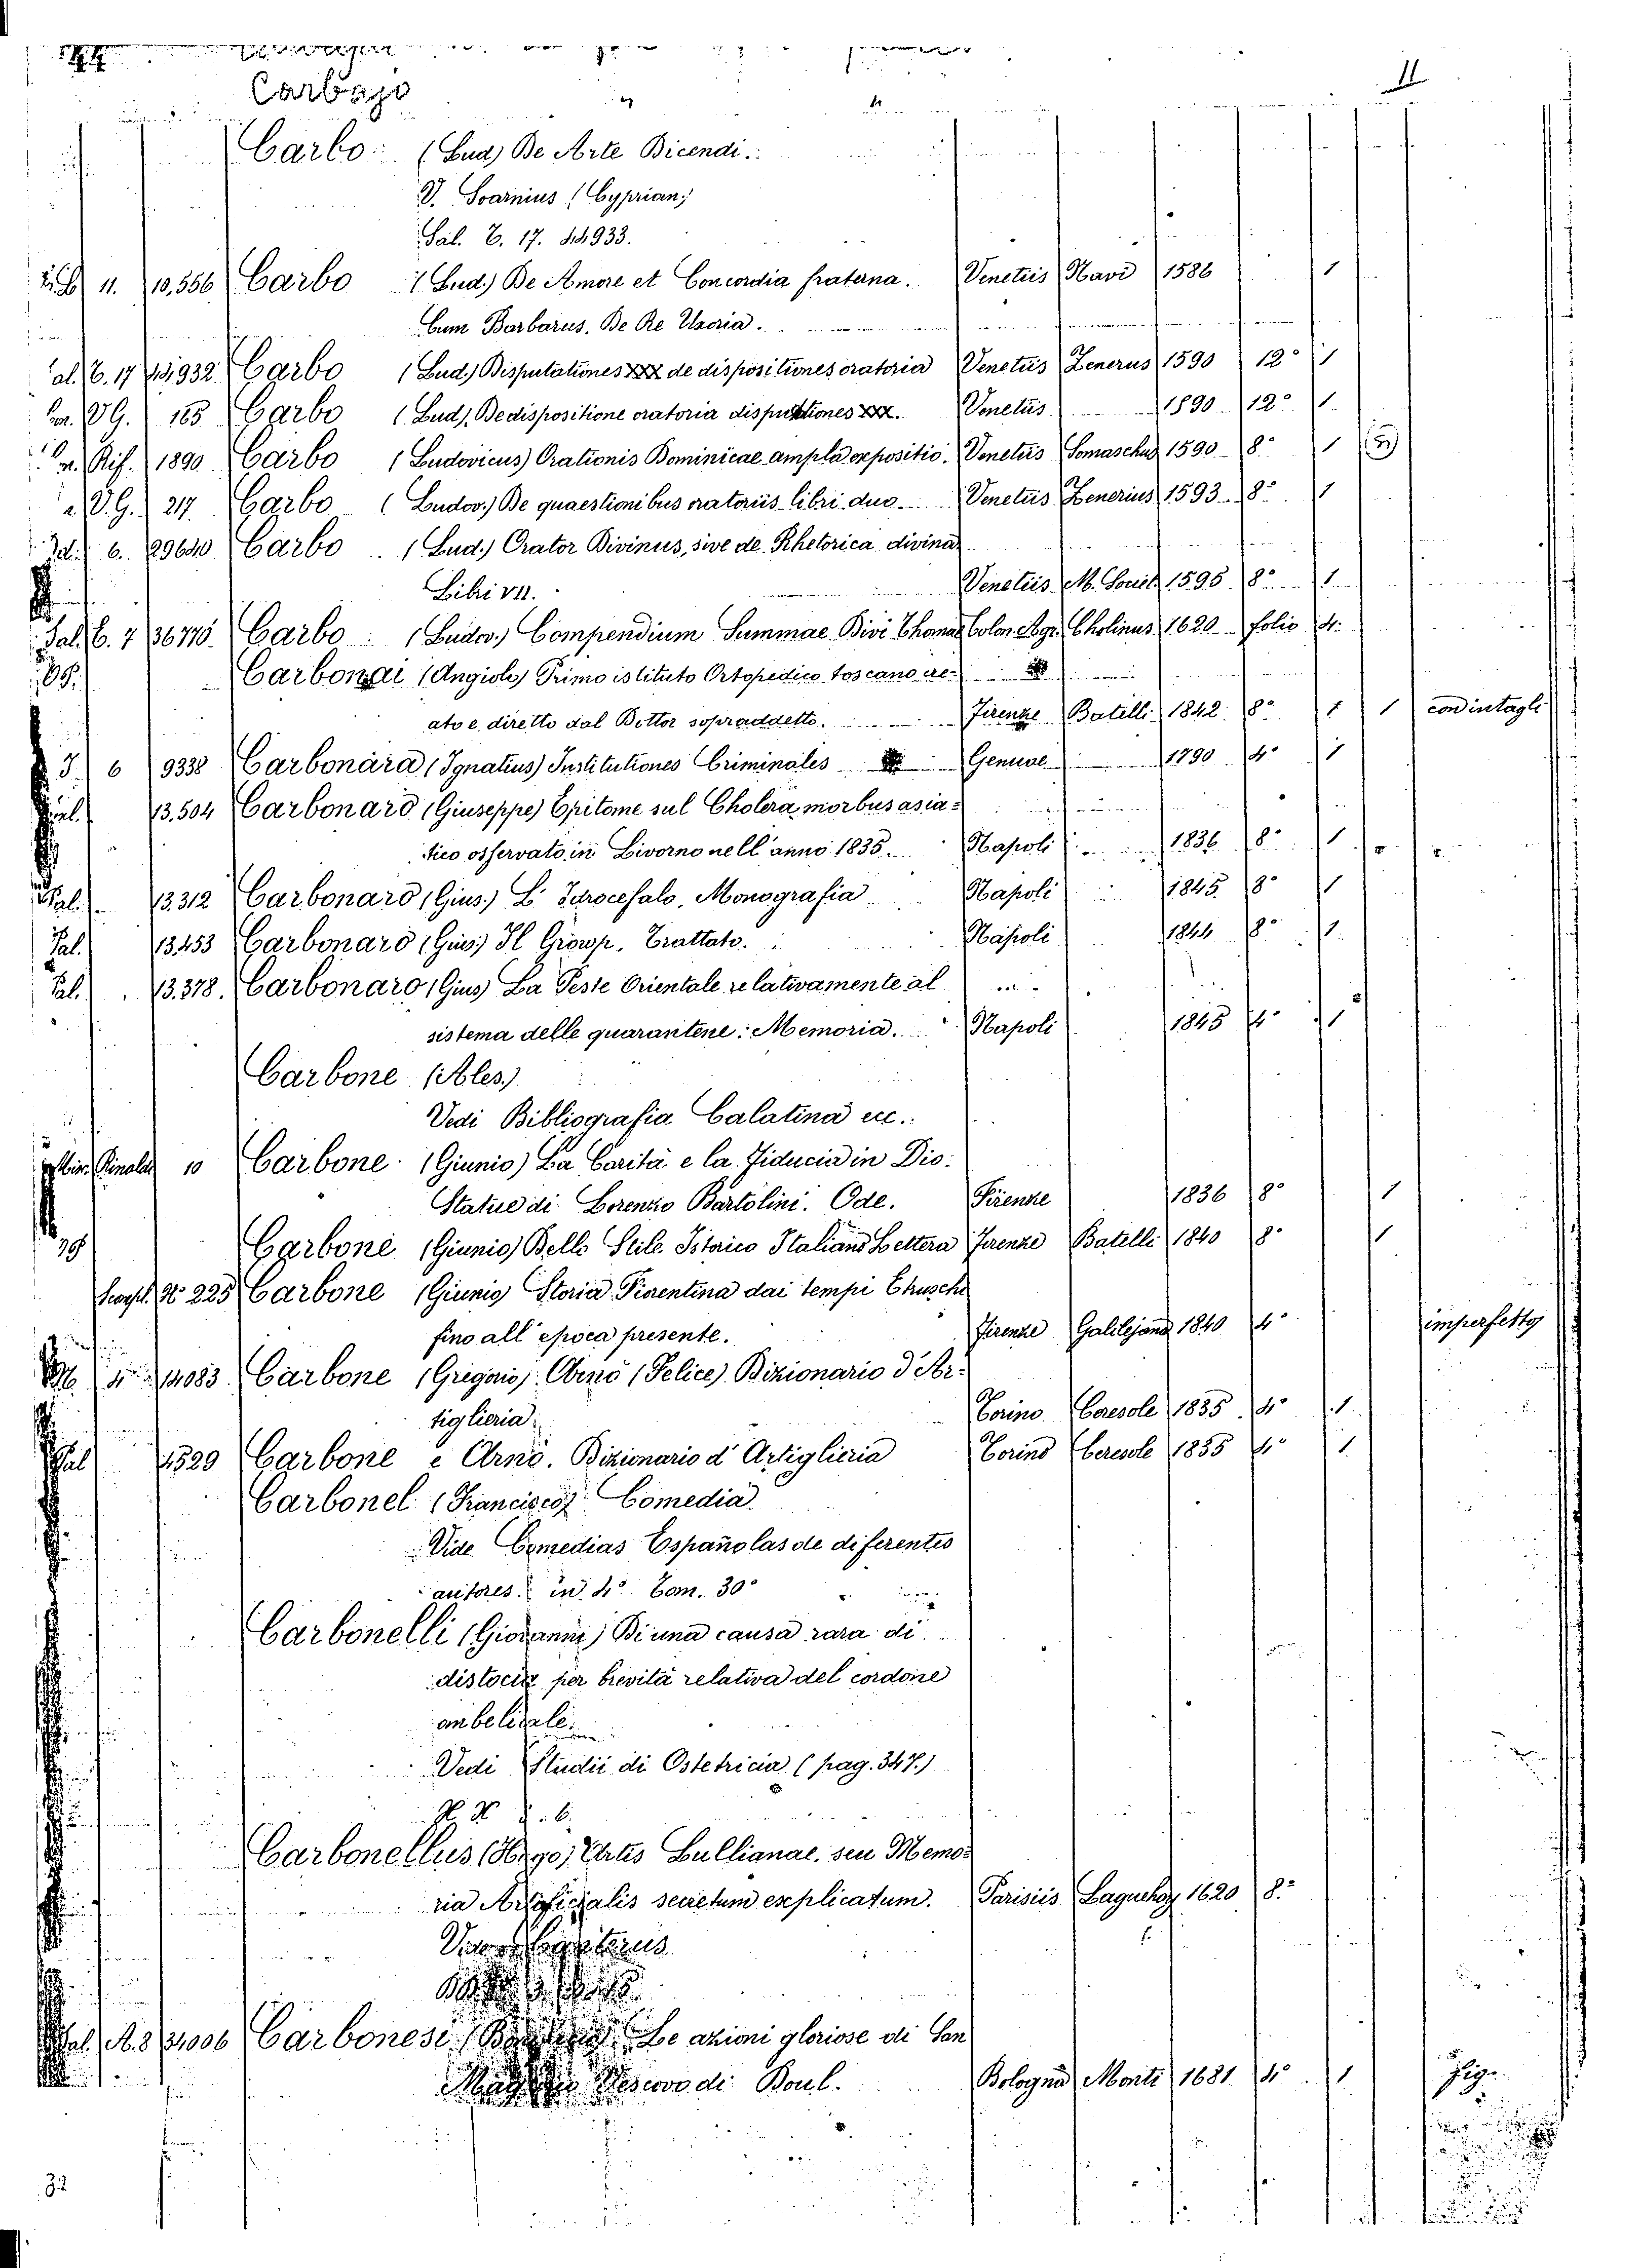 11
Carbo (Lud) De Arte Dicendi.
V. Soarnius (Cyprian;
Sal. E. 17. 44933.
11. 10,556 Carbo (Lud.) De Amore et Concordia fraterna. Venetiis Navi 1586 1
Cum Barbarus. De Re Uxoria.
al. E. 17 44,932 Carbo (Lud.) Disputationes XXX de dispositiones oratoria Venetiis Zenerus 1590 12° 1
V.G. 165 Carbo (Lud). De dispositione oratoria disputationes XXX. Venetiis 1590 12° 1
Rif. 1890 Carbo (Ludovicus) Orationis Dominicae ampla expositio. Venetiis Somaschus 1590 8° 1
V.G. 217 Carbo (Ludov.) De quaestionibus oratoriis libri duo. Venetiis Zenerius 1593 8° 1
6. 29640 Carbo (Lud.) Orator Divinus, sive de Rhetorica divina
Libri VII. Venetiis M. 1595 8° 1
Sal. E. 7 36770 Carbo (Ludov.) Compendium Summae Divi Thomae Colon. Agr. Cholinus 1620 folio 4.
Carbonai (Angiolo) Primo istituto Ortopedico toscano cre-
ato e diretto dal Dottor sopraddetto. Firenze Batelli 1842 8° 1 1 con intagli
J. 6 9338 Carbonara (Ignatius) Institutiones Criminales Genuae 1790 4° 1
13.504 Carbonaro (Giuseppe) Epitome sul Cholera morbus asia=
tico osservato in Livorno nell'anno 1835. Napoli 1836 8° 1
Pal. 13.312 Carbonaro (Gius.) L'Idrocefalo, Monografia Napoli 1845 8° 1
Pal. 13453 Carbonaro (Gius.) Il Croup. Trattato. Napoli 1844 8° 1
Pal. 13.378. Carbonaro (Gius) La Peste Orientale relativamente al
sistema delle quarantene: Memoria. Napoli 1845 4° 1
Carbone (Ales.)
Vedi Bibliografia Calatina ecc.
Rinaldi 10 Carbone (Giunio) La Carità e la Fiducia in Dio:
Statue di Lorenzo Bartolini. Ode. Firenze 1836 8° 1
Carbone (Giunio) Dello Stile Istorico Italiano Lettera Firenze Batelli 1840 8° 1
N° 225 Carbone (Giunio) Storia Fiorentina dai tempi Etruschi
fino all'epoca presente. Firenze Galilejana 1840 4° imperfetto
4 14083 Carbone (Grigorio) Arnò (Felice) Dizionario d'Ar-
tiglieria. Torino Ceresole 1835 4° 1
Pal 1529 Carbone e Arnò. Dizionario d'Artiglieria Torino Ceresole 1835 4° 1
Carbonel (Francisco) Comedia
Vide Comedias Españolas de diferentes
autores. in 4° Tom. 30°
Carbonelli (Giovanni) Di una causa rara di
distocia per brevità relativa del cordone
onbelicale.
Vedi Studii di Ostetricia (pag. 347.)
Carbonellus (Hugo) Artis Lullianae, seu Memo=
ria Artificialis secretum explicatum. Parisiis Laquehay 1620 8°
Pal. A.8 34006 Carbonesi Le azioni gloriose di San
Vescovo di Boul. Bologna Monti 1681 4° 1 Fig.
32